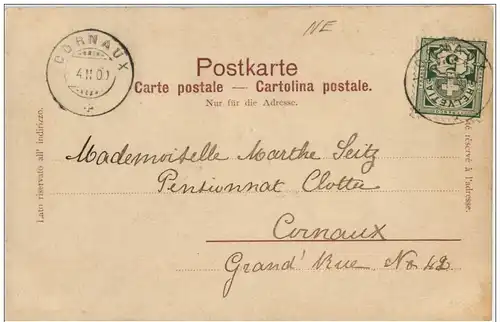 NE
CORNAUX
Postkarte
Carte postale — Cartolina postale.
Nur für die Adresse.
Lato riservato all' indirizzo.
é réservé à l'adresse.
HELVETIA
Mademoiselle Marthe Seitz
Pensionnat Clottu
Cornaux
Grand' Rue No 42